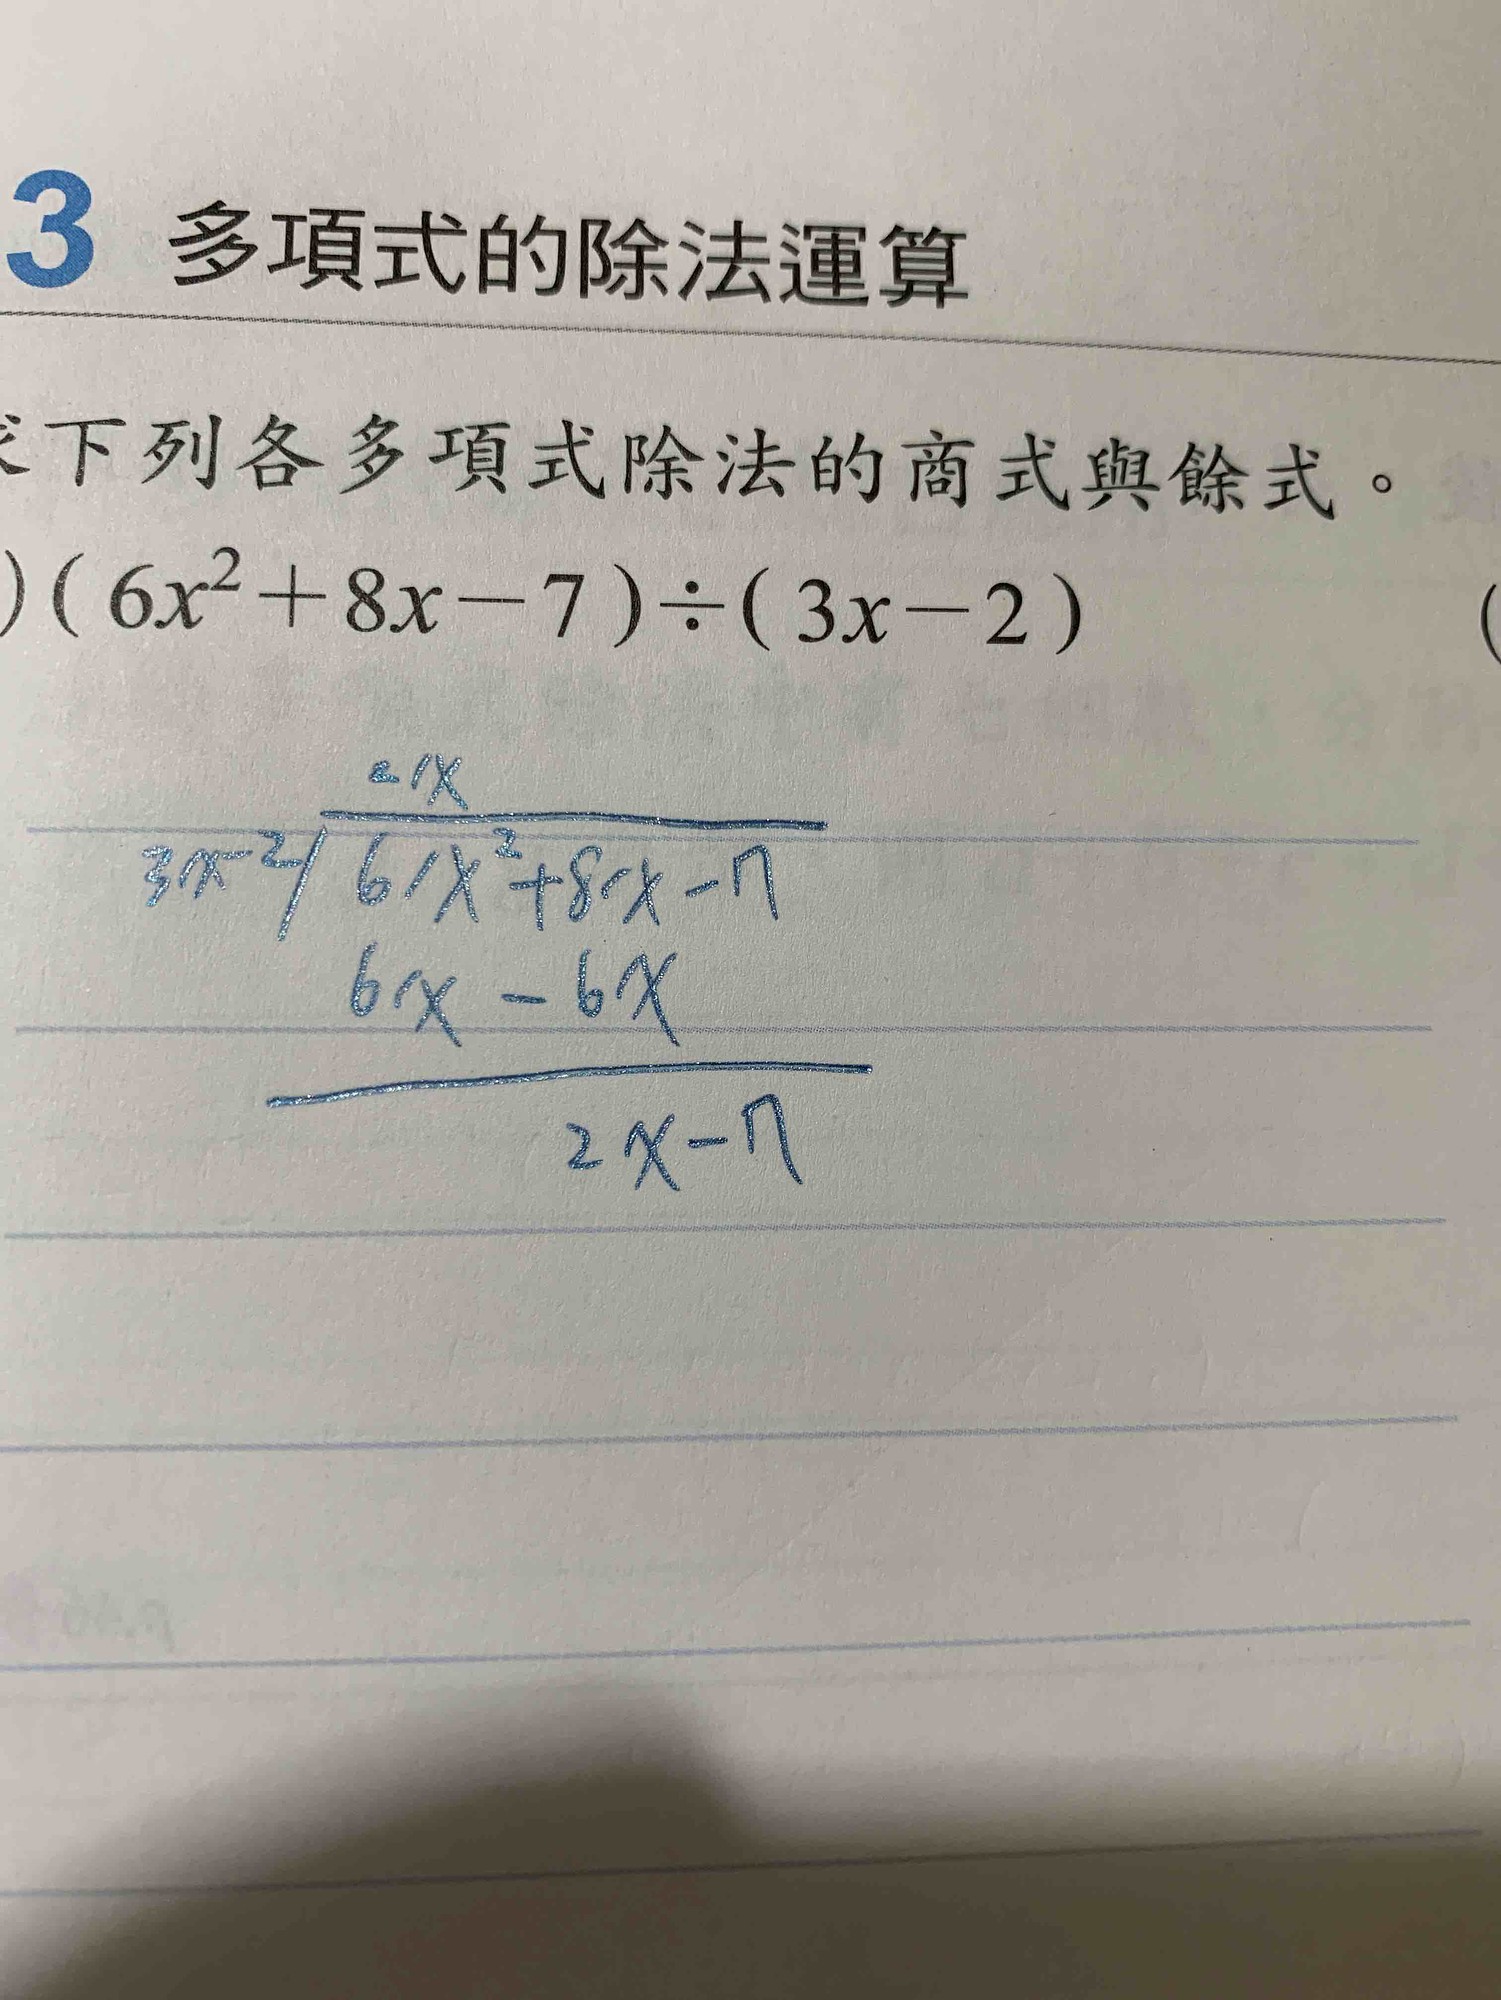 3 多項式的除法運算
求下列各多項式除法的商式與餘式。
)(6x²+8x-7)÷(3x-2) (
2x
3x-2 6x²+8x-7
6x - 6x
2x-7